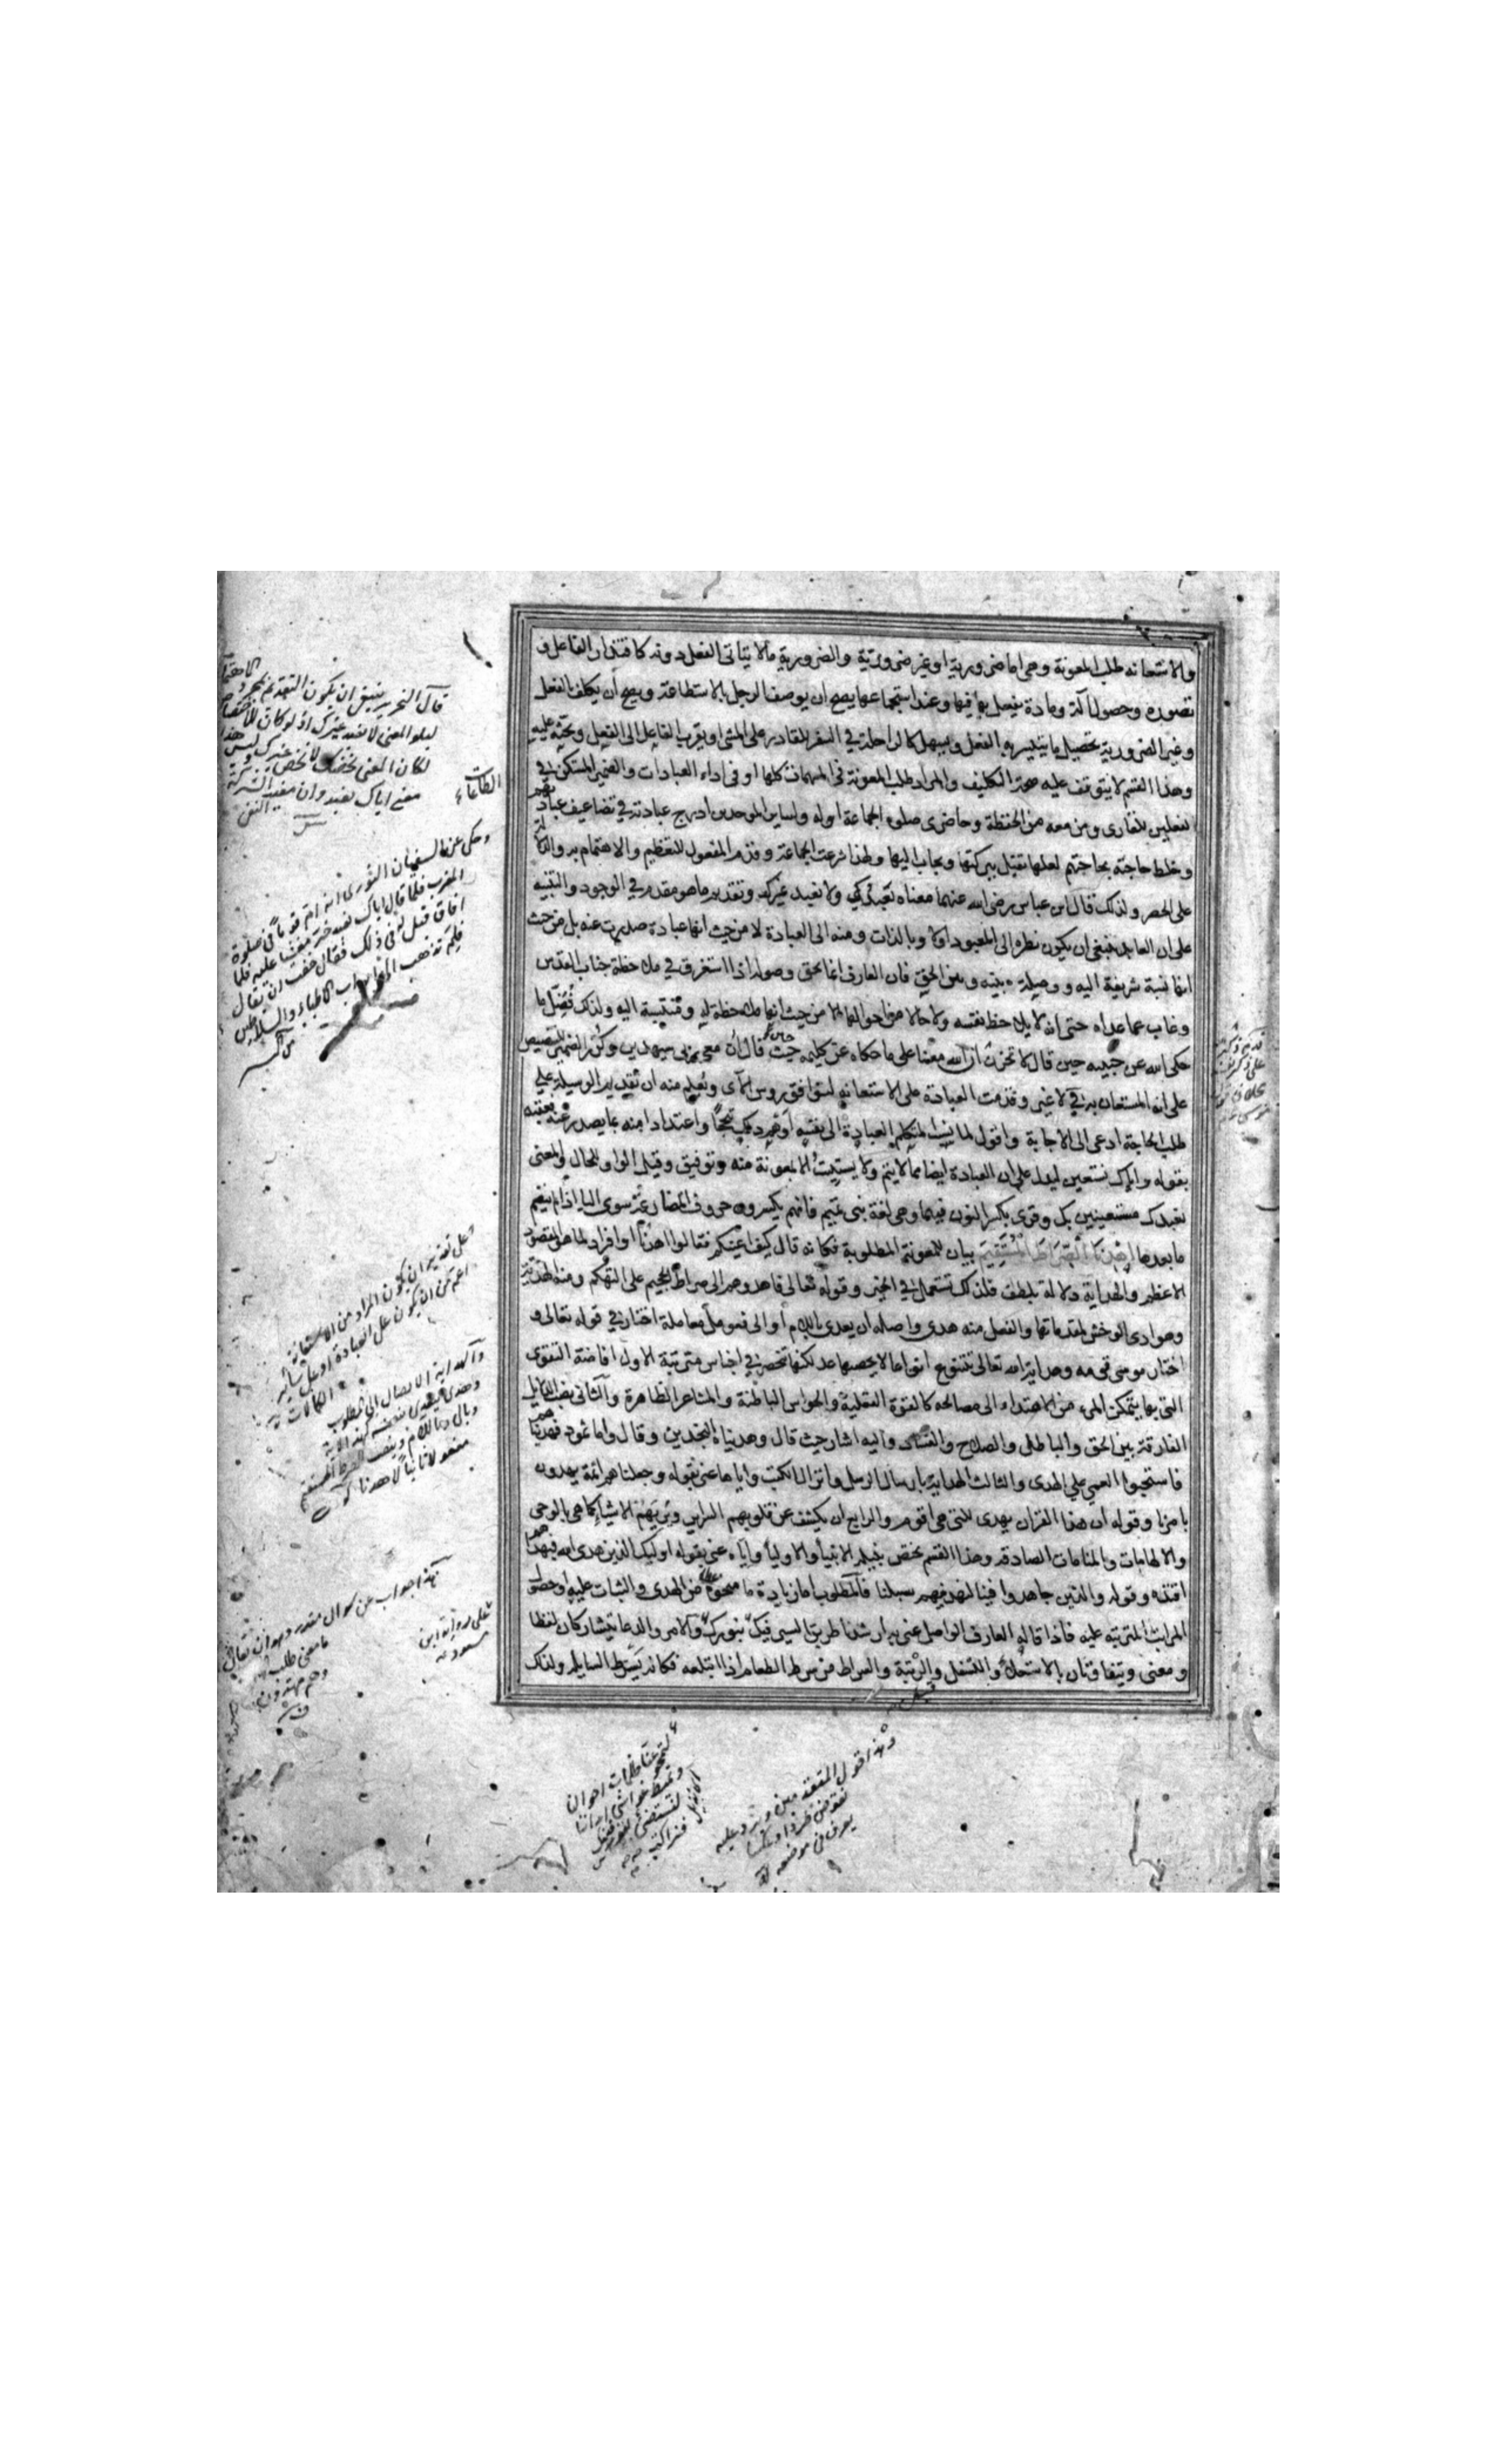 والاستعانة طلب المعونة وهي اما ضرورية او غير ضرورية والضرورية ما لا يتأتى الفعل دونه كاقتدار الفاعل و
تصوره وحصول آلة ومادة يفعل بها فيها وعند استجماعها يصح ان يوصف الرجل بالاستطاعة ويصح أن يكلف بالفعل
وغير الضرورية تحصيل ما يتيسر به الفعل ويسهل كالراحلة في السفر للقادر على المشى او يقرب الفاعل الى الفعل ويحثه عليه
وهذا القسم لا يتوقف عليه صحة التكليف والمراد طلب المعونة في المهمات كلها او في اداء العبادات والضمير المستكن في
الفعلين للقارى ومن معه من الحفظة وحاضرى صلوة الجماعة او له ولساير الموحدين ادرج عبادته في تضاعيف عباد
تهم
وخلط حاجته بحاجتهم لعلها تقبل ببركتها ويجاب اليها ولهذا شرعت الجماعة وقدم المفعول للتعظيم والاهتمام به والدلا
لة
على الحصر ولذلك قال ابن عباس رضى الله عنهما معناه نعبدك ولا نعبد غيرك وتقديم ما هو مقدم في الوجود والتنبيه
على ان العابد ينبغي ان يكون نظره الى المعبود اولا وبالذات ومنه الى العبادة لا من حيث انها عبادة صدرت عنه بل من حيث
انها نسبة شريفة اليه ووصيلة بينه وبين الحق فان العارف انما يحق وصوله اذا استغرق في ملاحظة جناب القدس
وغاب عما عداه حتى انه لا يلاحظ نفسه ولا حالا من احوالها الا من حيث انها ملاحظة له ومنتسبة اليه ولذلك فضل ما
حكى الله عن حبيبه حين قال لا تحزن ان الله معنا على ما حكاه عن كليمه حيث قال ان معي ربى سيهدين وكرر الضمير للتنصيص
على انه المستعان به لا غير وقدمت العبادة على الاستعانة ليتوافق روس الآى ويعلم منه ان تقديم الوسيلة على
طلب الحاجة ادعى الى الاجابة واقول لما نسب المتكلم العبادة الى نفسه اوهم ذلك تبجحا واعتدادا منه بما يصدر عنه فعقبه
بقوله واياك نستعين ليدل على ان العبادة ايضا مما لا يتم ولا يستتب الا بمعونة منه وتوفيق وقيل الواو للحال والمعنى
نعبدك مستعينين بك وقرى بكسر النون فيهما وهي لغة بني تميم فانهم يكسرون حروف المضارعة سوى اليا اذا لم ينضم
ما بعدها اهدنا الصراط المستقيم بيان للمعونة المطلوبة فكانه قال كيف اعينكم فقالوا اهدنا او افراد لما هو المقصود
الاعظم والهداية دلالة بلطف فلذلك تستعمل في الخير وقوله تعالى فاهدوهم الى صراط الجحيم على التهكم ومنه الهدية
وهوادى الوحش لمقدماتها والفعل منه هدى واصله ان يعدى باللام او الى فعومل معاملة اختار في قوله تعالى و
اختار موسى قومه وهداية الله تعالى تتنوع انواعا لا يحصيها عد لكنها تنحصر في اجناس مترتبة الاول افاضة القوى
التى بها يتمكن المرء من الاهتداء الى مصالحه كالقوة العقلية والحواس الباطنة والمشاعر الظاهرة والثانى نصب الدلايل
الفارقة بين الحق والباطل والصلاح والفساد واليه اشار حيث قال وهديناه النجدين وقال واما ثمود فهدينا
هم
فاستحبوا العمي على الهدى والثالث الهداية بارسال الرسل وانزال الكتب واياها عنى بقوله وجعلناهم ائمة يهدون
بامرنا وقوله ان هذا القران يهدى للتى هي اقوم والرابع ان يكشف عن قلوبهم السراير ويريهم الاشياء كما هي بالوحى
والالهامات والمنامات الصادقة وهذا القسم يختص بنيله الانبيا والاوليا واياه عنى بقوله اوليك الذين هدى الله فبهدا
هم
اقتده وقوله والذين جاهدوا فينا لنهدينهم سبلنا فالمطلوب اما زيادة ما منحوه من الهدى والثبات عليه او حصول
المراتب المترتبة عليه فاذا قاله العارف الواصل عنى به ارشدنا طريق السير فيك بنورك والامر والدعا يتشاركان لفظا
ومعنى ويتفاوتان بالاستعلاء والتسفل والرتبة والسراط من سرط الطعام اذا ابتلعه فكانه يسرط السابلة ولذلك
قال النحرير ينبغي ان يكون التقديم
الطاعات
وحكى عن السفيان الثورى انه ام قوما في صلوة
المغرب فلما قال اياك نعبد خر مغشيا عليه فلما
افاق قيل له في ذلك فقال خفت ان يقال
فلم تذهب الى ابواب الاطباء والسلاطين
على تقدير ان يكون المراد من الاستعانة
اعم من ان يكون على العبادة او على سائر
والهداية الايصال الى المطلوب
هذا جواب عن سوال مقدر وهو ان يقال
ما معنى طلب
وهم مهتدون
على رواية ابن
مسعود
وهذا قول المتقدمين ويرد عليه
يعرف في موضعه